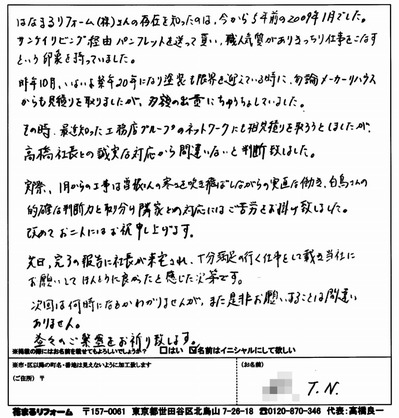 はなまるリフォーム(株)さんの存在を知ったのは、今から5年前の2009年1月でした。
サンケイリビング経由パンフレットを送って貰い、職人気質がありきっちり仕事をこなす
という印象を持っていました。
昨年10月、いよいよ築年20年になり塗装も限界を迎えている時に、勿論メーカーハウス
からも見積りを取りましたが、万積の出費にちゅうちょしていました。
その時、最近知った工務店グループのネットワークにも相見積りを取ろうとしましたが、
高橋社長との誠実な対応から間違いないと判断致しました。
実際、1月からの工事は職人の寒さを吹き飛ばしながらの実直な働き、白鳥さんの
的確な判断力と取り分け隣家との対応にはご苦労をお掛け致しました。
改めてお二人にはお礼申し上げます。
先日、完了の報告に社長が来宅され、十分満足の行く仕事をして戴き当社に
お願いしてほんとうに良かったと感じた次第です。
次回は何時になるかわかりませんが、また是非お願いすることは間違い
ありません。
益々のご発展をお祈り致します。
※掲載の際にはお名前を載せてもよろしいでしょうか? □はい ☑名前はイニシャルにして欲しい
※市・区以降の町名・番地は見えないように加工致します
(ご住所) 〒
(お名前)
T.N.
花まるリフォーム 〒157-0061 東京都世田谷区北烏山7-26-18 ☎0120-870-346 代表:高橋良一